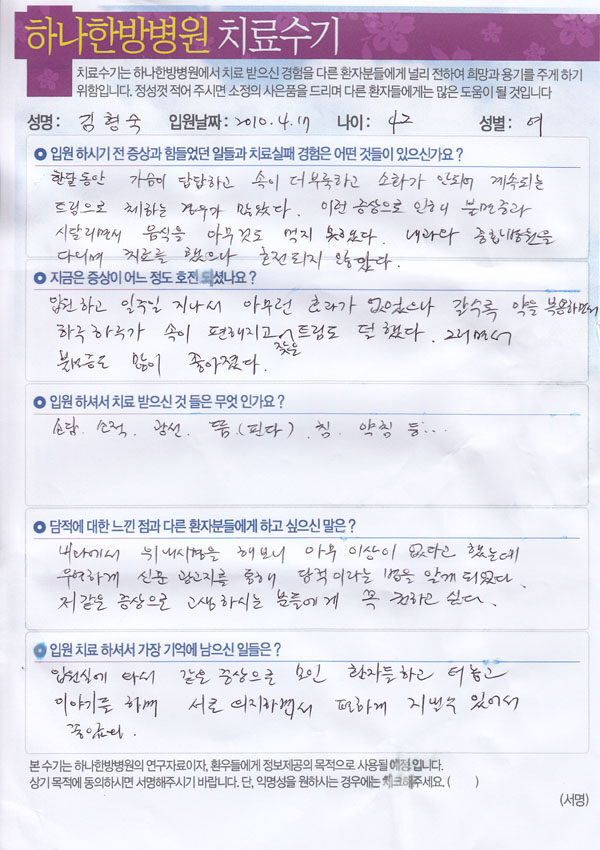 하나한방병원 치료수기
치료수기는 하나한방병원에서 치료 받으신 경험을 다른 환자분들에게 널리 전하여 희망과 용기를 주게 하기
위함입니다. 정성껏 적어 주시면 소정의 사은품을 드리며 다른 환자들에게는 많은 도움이 될 것입니다
성명 : 김형숙 입원날짜 : 2010.4.17 나이 : 42 성별 : 여
입원 하시기 전 증상과 힘들었던 일들과 치료실패 경험은 어떤 것들이 있으신가요 ?
한달동안 가슴이 답답하고 속이 더부룩하고 소화가 안되며 계속되는
트림으로 체하는 경우가 많았다. 이런 증상으로 인해 불면증과
시달리면서 음식을 아무것도 먹지 못하였다. 내과와 종합병원을
다니며 치료를 했으나 호전되지 않았다.
지금은 증상이 어느 정도 호전 되셨나요 ?
입원하고 일주일 지나서 아무런 효과가 없었으나 갈수록 약을 복용하면서
하루하루가 속이 편해지고 잦은 트림도 덜했다. 그러면서
불면증도 많이 좋아졌다.
입원 하셔서 치료 받으신 것 들은 무엇 인가요 ?
소담. 소적. 광선. 뜸. (핀다) 침. 약침 등...
담적에 대한 느낀 점과 다른 환자분들에게 하고 싶으신 말은 ?
내과에서 위내시경을 해보니 아무 이상이 없다고 했는데
우연하게 신문 광고지를 통해 담적이라는 병을 알게 되었다.
저같은 증상으로 고생하시는 분들에게 꼭 권하고 싶다.
입원 치료 하셔서 가장 기억에 남으신 일들은 ?
입원실에 와서 같은 증상으로 모인 환자들하고 터놓고
이야기를 하며 서로 의지하면서 편하게 지낼수 있어서
좋았다.
본 수기는 하나한방병원의 연구자료이자, 환우들에게 정보제공의 목적으로 사용될 예정입니다.
상기 목적에 동의하시면 서명해주시기 바랍니다. 단, 익명성을 원하시는 경우에는 체크해주세요. ( )
(서명)